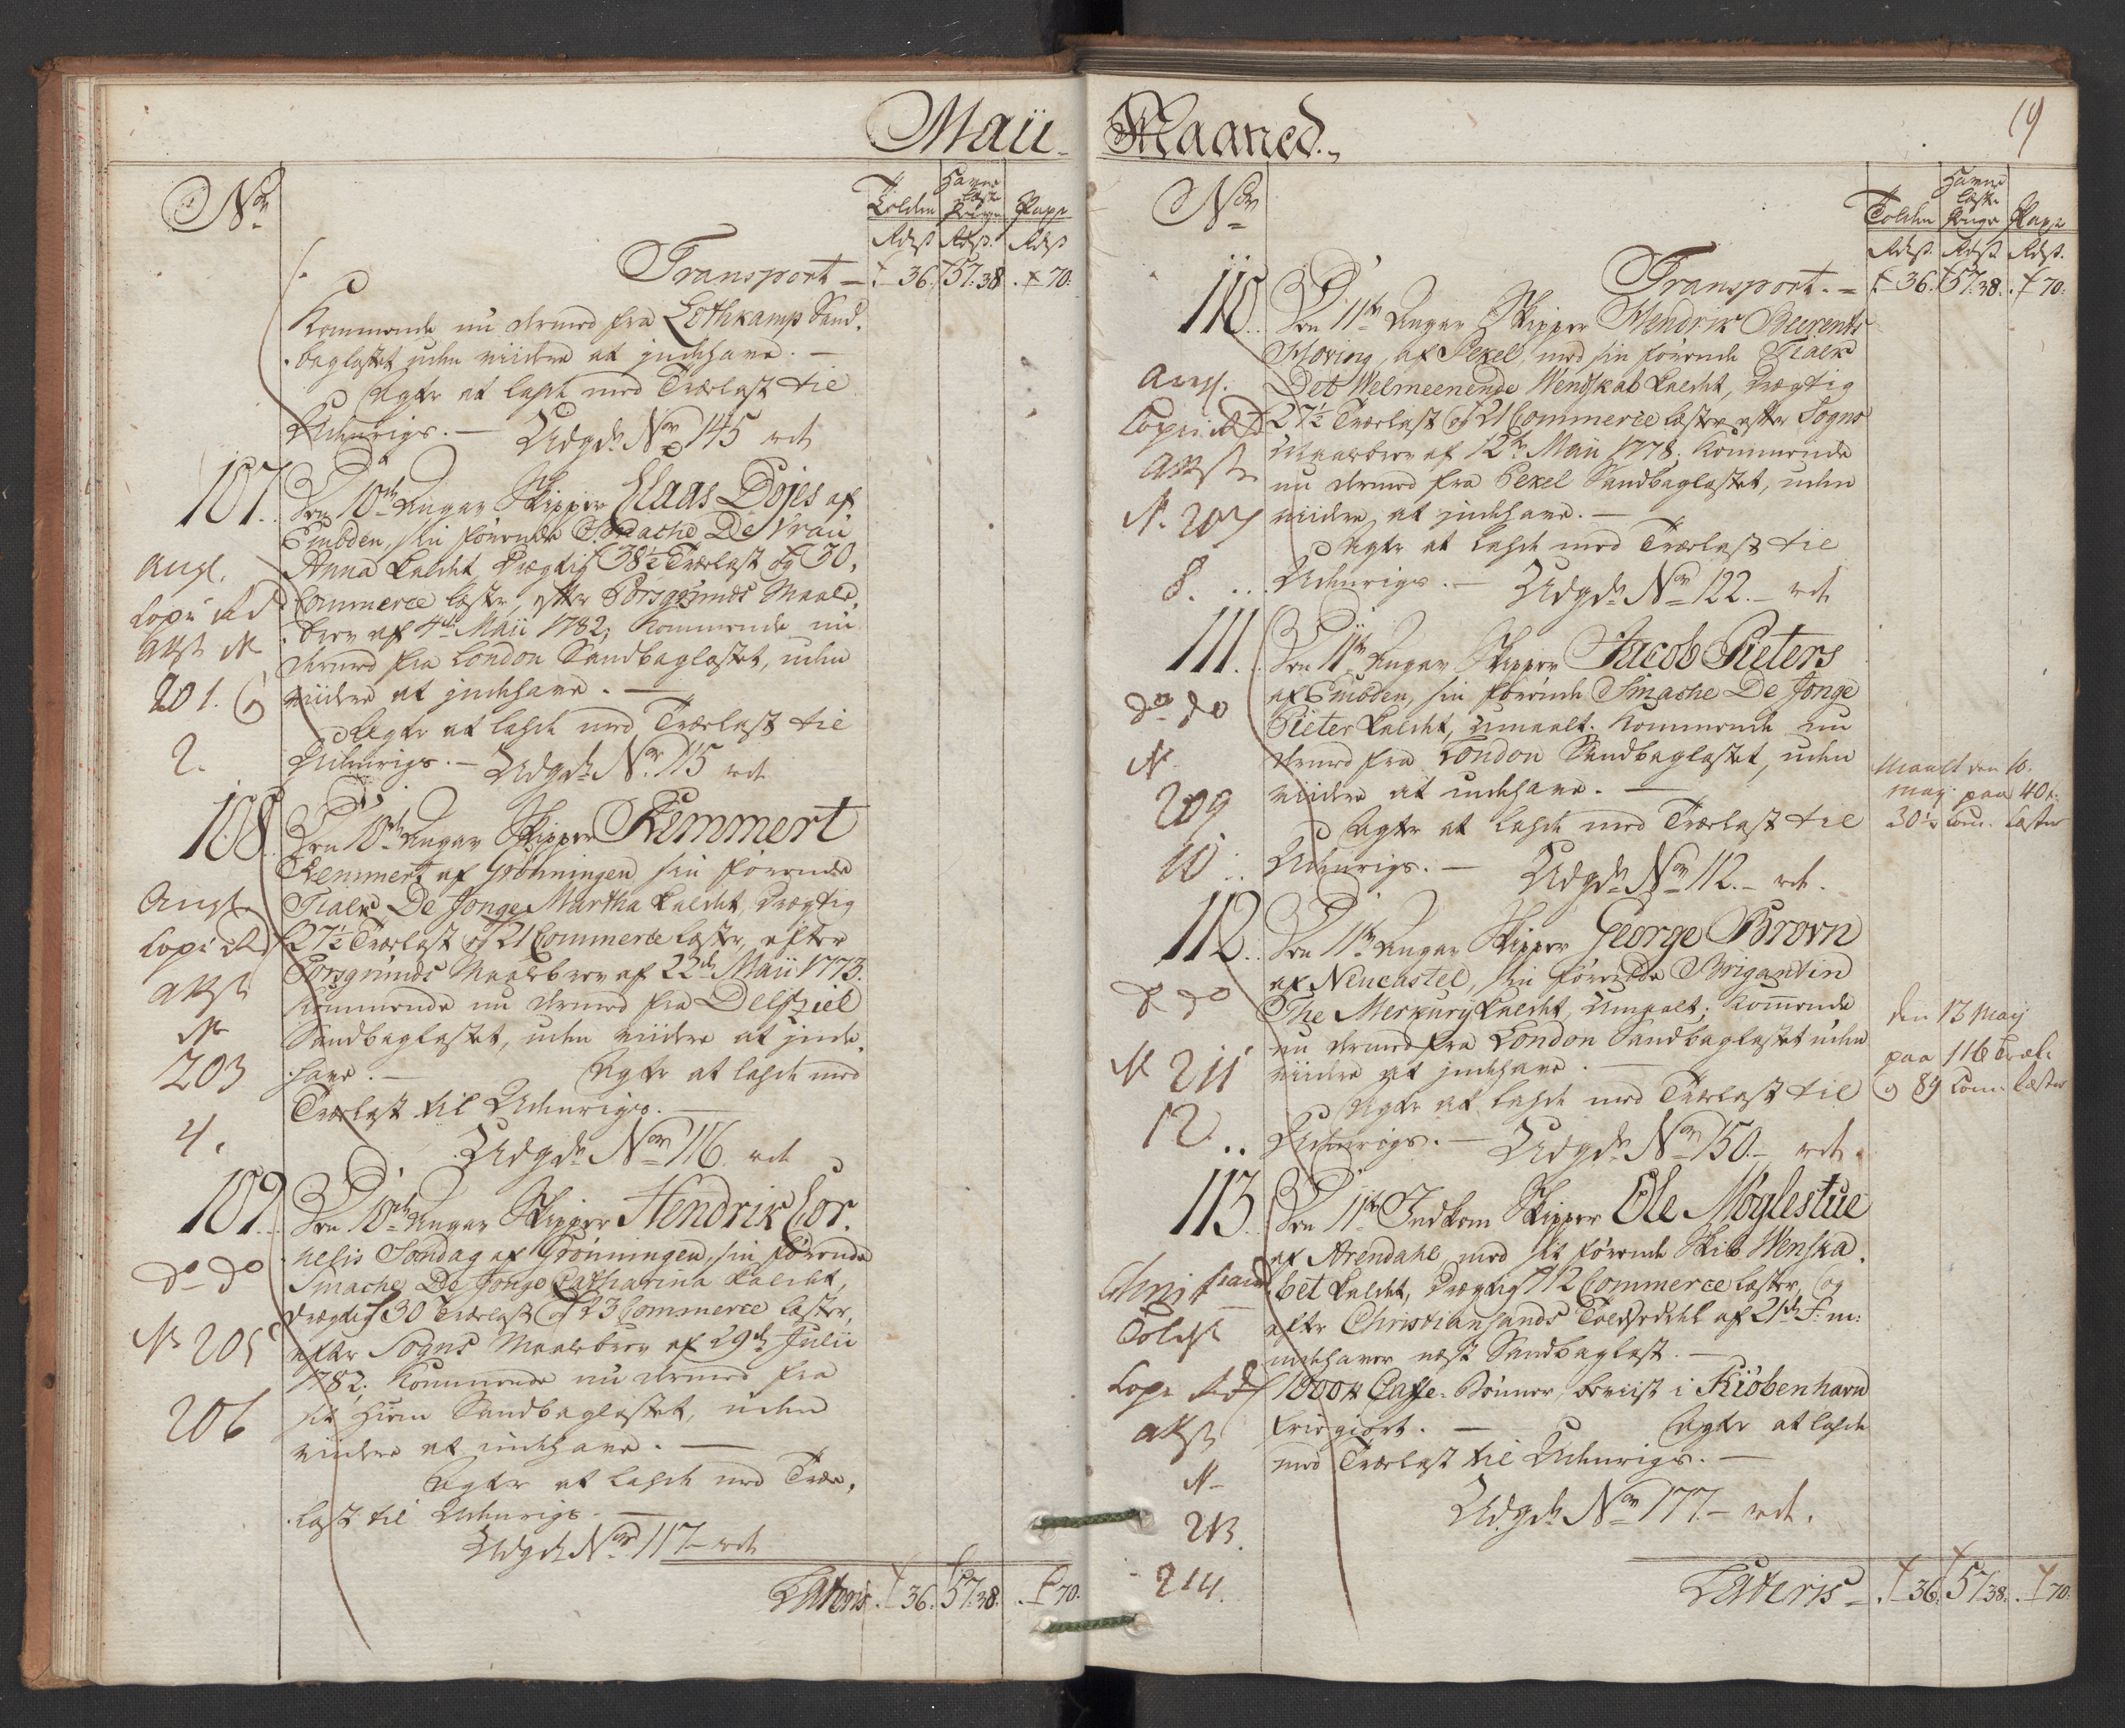 Maii
No
Tolden
Havne
Laste
Penge
Papp
Rdß
Rdß.
Rdß
Transport — 36. 57:38 . 70:
Kommende nu dermed fra Lothkamp Sand,
baglastet uden viidere at indehave. —
Agter at lasde med Trælast til
Udenrigs. — Udgd. No. 145
107.
Den 10de Angav Skipper Claas Dojes af
Embden, sin förende Smache De Vrau
Anna kaldet, Drægtig 38½ Trælast og 30.
Commerce læster, efter Porsgrunds Maale
brev af 4de Maii 1782; Kommende nu
dermed fra London Sandbaglastet, uden
viidere at indehave. —
Agter at lasde med Trælast til
Udenrigs. — Udgd. No. 115
Ang.
Copi
201. og
2.
108.
Den 10de Angav Skipper Remmert
Remmert af Grönningen sin förende
Tialk De Jonge Martha kaldet, Drægtig
27½ Trælast og 21 Commerce læster, efter
Porsgrunds Maalebrev af 22de Maii 1773.
Kommende nu dermed fra Delfziel
Sandbaglastet, uden viidere at inde
have. — Agter at lasde med
Trælast til Udenrigs. —
Udgd. No. 116
Ang.
Copi
No
203
4.
109.
Den 10de Angav Skipper Hendrik Cor.
nelis Sondag af Grönningen, sin förende
Smache De Jonge Catharina kaldet,
Drægtig 30 Trælast og 23 Commerce læster,
efter Sogns Maalebrev af 29de Julii
1782; Kommende nu dermed fra
sit Hiem Sandbaglastet, uden
viidere at indehave. —
Agter at lasde med Træe,
last til Udenrigs. —
Udgd. No. 117 —
do do
No 205
206
Lateris 36. 57:38. 70.
Maaned.
19
No
Tolden
Havne
laste
Penge
Papp
Rdß.
Rdß.
Rdß.
Transport. — 36. 57:38. 70:
110.
Den 11te Angav Skipper Hendrik Beerents
Hoving, af Pekel, med sin förende Tialk
Det Welmeenende Wendskab kaldet, Drægtig
27½ Trælast og 21 Commerce læster efter Sogns
Maalebrev af 12te Maii 1778. Kommende
nu dermed fra Pekel Sandbaglastet, uden
viidere at indehave. —
Agter at lasde med Trælast til
Udenrigs. — Udgd. No. 122. —
Ang.
Copi
No. 207
8.
111.
Den 11te Angav Skipper Jacob Pieters
af Embden, sin förende Smache De Jonge
Pieter kaldet, umaalt. Kommende nu
dermed fra London Sandbaglastet, uden
viidere at indehave. —
Agter at lasde med Trælast til
Udenrigs. — Udgd. No. 112. —
do do
No
209
10
Maalt den 16.
maj. paa 40 t.
30½ Com. Læster
112.
Den 11te Angav Skipper George Brovn
af Neucastel, sin förende Brigantin
The Merkury kaldet, Umaalt; Kommende
nu dermed fra London Sandbaglastet uden
viidere at indehave. —
Agter at lasde med Trælast til
Udenrigs. — Udgd. No. 150. —
do do
No 211
12.
den 13 Maij
paa 116 Træl.
og 89 Com. læster
113.
Den 11te Indkom Skipper Ole Möglestue
af Arendahl, med sit förende Skib Wenska.
bet kaldet, Drægtig 112 Commerce læster, og
efter Christiansands Toldseddel af 21de F. m:
indehaver næst Sandbaglast. —
1000 ℔ Caffe-Bönner, beviist i Kiöbenhavn
friegiort. — Agter at lasde
med Trælast til Udenrigs. —
Udgd. No. 177. —
Toldsl
Copi
No
213.
214.
Lateris — 36. 57:38. 70: